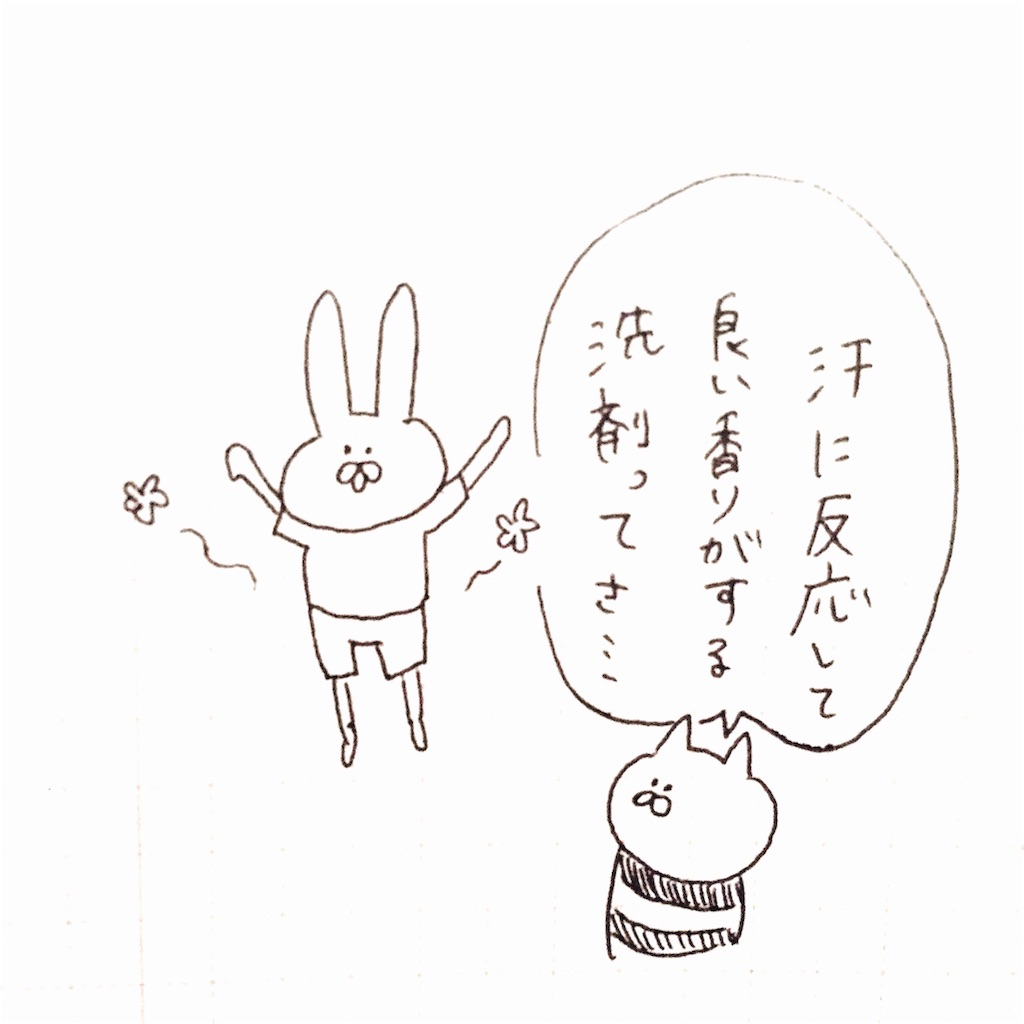 汗に反応して
良い香りがする
洗剤ってさ…